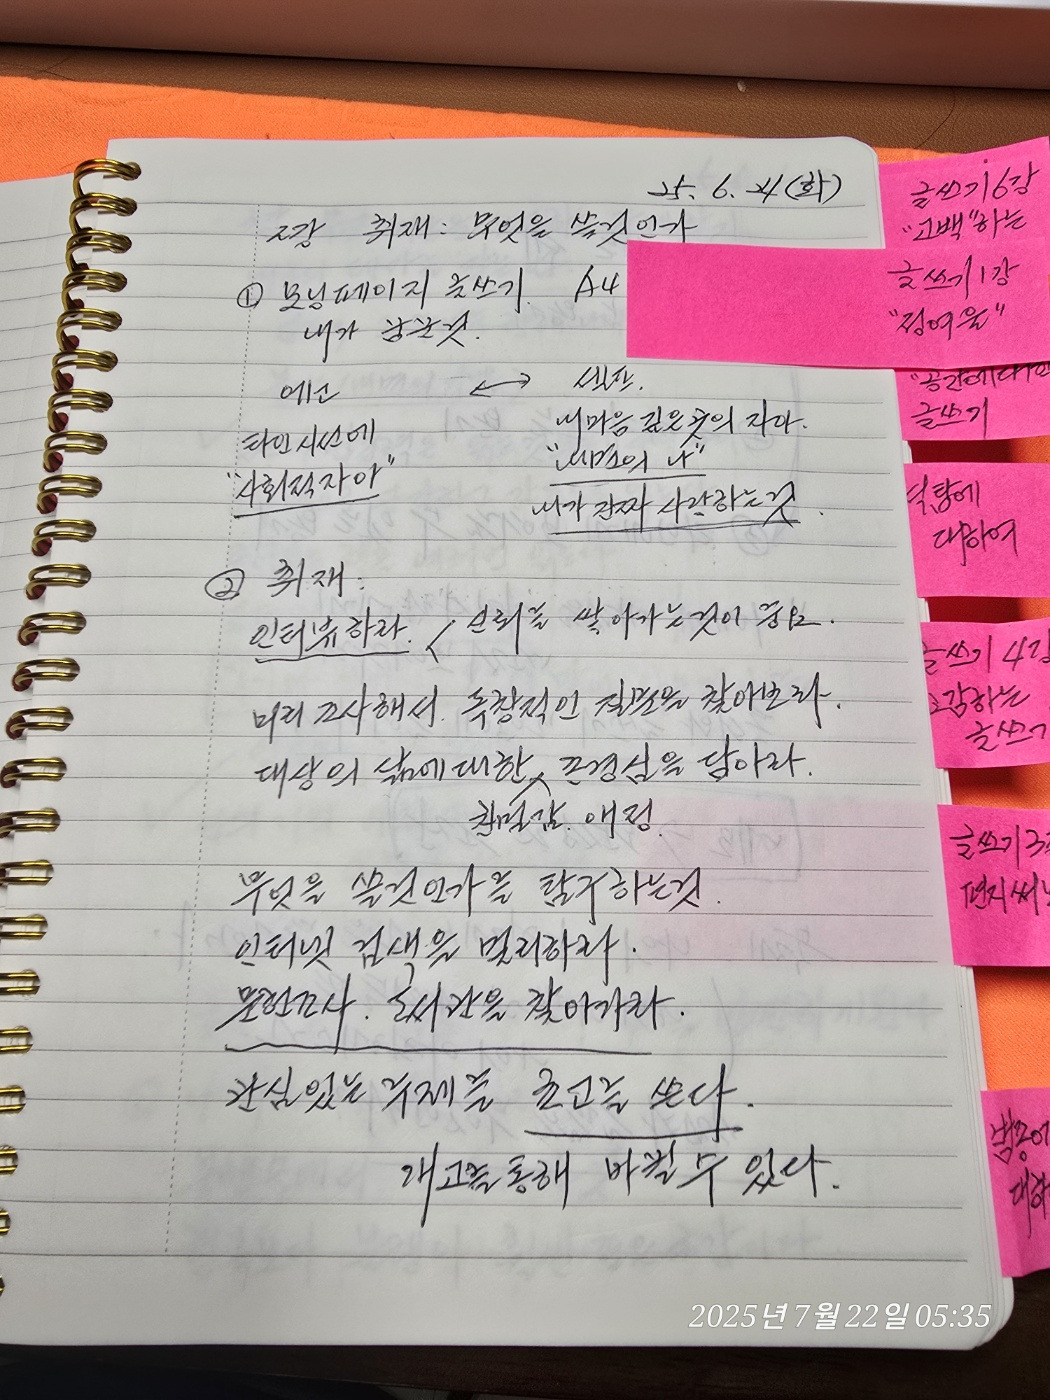 25. 6. 24 (화)
2강 취재: 무엇을 쓸것인가
① 모닝페이지 글쓰기. A4
내가 남는것.
에고 ↔ 심판.
타인시선에 내마음 깊은 곳의 자아.
"사회적자아" "내면의 나"
내가 진짜 사랑하는것.
② 취재:
인터뷰하라. < 신뢰를 쌓아가는것이 중요.
미리 조사해서. 독창적인 질문을 찾아보라.
대상의 삶에대한 존경심을 담아라.
친밀감. 애정.
무엇을 쓸것인가를 탐구하는것.
인터넷 검색을 멀리하라.
문헌조사. 도서관을 찾아가라.
관심있는 주제를 초고를 쓴다.
개고를통해 바뀔수 있다.
글쓰기 6강
"고백"하는
글쓰기 1강
"정여울"
"공간에대한
글쓰기
식탐에
대하여
글쓰기 4강
공감하는
글쓰기
글쓰기 3강
편지써
대하
2025년 7월 22일 05:35